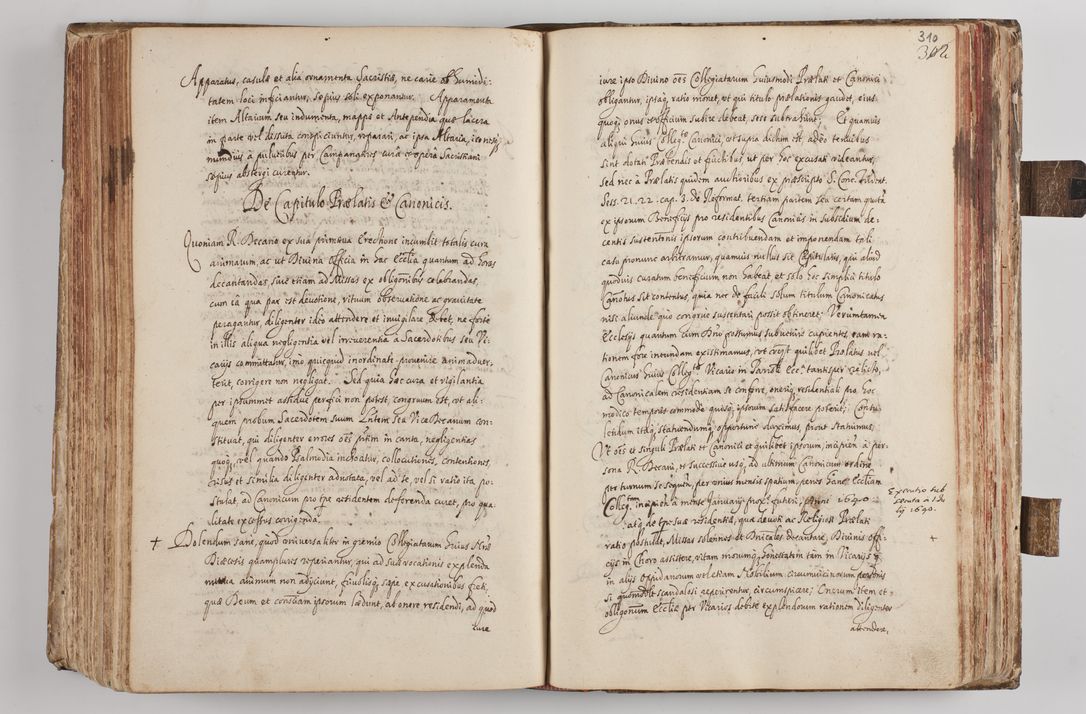 Apparatus, casulæ et alia ornamenta Sacristiæ, ne carie ob humidi-
tatem loci inficiantur, sæpius soli exponantur. Apparamenta
item Altarium seu indumenta, mappæ et Antependia quæ lacera
in parte vel dissuta conspiciuntur, reparari, ac ipsa Altaria,
mundius à pulveribus per Campanatores curâ et operâ Sacristiani
sæpius abstergi curentur.
De Capitulo Prælatis & Canonicis.
Quoniam R. Decano ex sua primæva Erectione incumbit totalis cura
animarum, ac ut Divina officia in hac Ecclîa quantum ad horas
decantandas, sive etiam ad Missas ex obligonibus celebrandas,
cum eâ qua par est devotione, rituum observatione ac gravitate
peragantur, diligenter ideo attendere et invigilare debet, ne forte
in illis aliqua negligentia vel irreverentia à Sacerdotibus seu Vi-
carijs committatur, imo quicquid inordinate provenire animadver-
terit, corrigere non negligat. Sed quia hæc cura et vigilantia
per ipsummet assidue perfici non potest, congruum est, ut ali-
quem probum Sacerdotem suum Lntem seu ViceDecanum con-
stituat, qui diligenter errores oës in cantu, negligentias
quoq, vel quando Psalmodia inchoatur, collocutiones, contentiones,
risus et similia diligenter adnotata, vel ad se, vel si ratio ita po-
stulat, ad Canonicum pro tpe residentem deferenda curet, pro qua-
litate excessus corrigenda.
+ Dolendum sane, quod universaliter in gremio Collegiatarum huius
Diæcesis quamplures reperiantur, qui ad suæ vocationis explenda
munia animum non adijciunt, frivolisq, sæpe excusationibus freti,
quæ Deum et consciam ipsorum lædunt, ab onere residendi, ad quod
iure
310
302
iure ipso Divino oës Collegiatarum huiusmodi Prælati et Canonici
obligantur, ipsaq, ratio monet, ut qui titulo prælationis gaudet, eius
quoq, onus et officium subire debeat, sese subtrahunt; Et quamvis
aliqui huius Colleg: Canonici, ut supra dictum est, adeo tenuibus
sint dotati Præbendis et fructibus, ut per hoc excusati videantur,
sed nec à Prælatis quidem auctioribus ex præscripto S. Conc. Trident.
Sess. 21. 22. cap. 3. de Reformat. tertiam partem seu certam quotâ
ex ipsorum Beneficijs pro residentibus Canonicis in subsidium de-
centis sustentonis ipsorum contribuendam et imponendam tali
casu pronunc arbitramur, quamvis nullus sit Capitularis, qui aliud
quodvis curatum beneficium non habeat, et solo hoc simplici titulo
Canotus sit contentus, quia nec de facili solum titulum Canonicatus
nisi aliunde quo congrue sustentari possit obtineret; Verumtamen
Ecclesiæ quantum cum Dno possumus subvenire cupientes, eam ra-
tionem fore ineundam existimamus, ut quilibet Prælatus vel
Canonicus huius Colleg: Vicario in Paroch. Ecc. tantisper relicto,
ad Canonicalem residentiam se conferre, onerîq, residentiali pro hoc
modico temporis commodo quisq, ipsorum satisfacere poterit; Consu-
lendum itaq, statuendumq, opportune duximus, prout Statuimus,
Ut oës et singuli Prælati et Canonici et quilibet ipsorum, incipien. à per-
sona R. Decani, et successive usq, ad ultimum Canonicum ordine
per turnum se sequen. per unius mensis spatium, penes hanc Ecclîam
Colleg. incipien à mense Januarij prox. futuri, Anni 1640
Executio sub
secuta à 1 Ju
lij 1640.
atq, de tpe suæ residentiæ, qua devoti ac Religiosi Prælati
ratio postulat, Missas solennes et Dnicales decantare, Divinis offi-
cijs in Choro assistere, vitam morumq, honestatem tam in Vicarijs q
in alijs oppidanorum vel etiam Nobilium circumvicinorum personis
si quidmodi scandalosi reperirentur, circumspicere; Onerum item et
obligonum Ecclîæ per Vicarios debitè explendorum rationem diligenter
attendere,
+